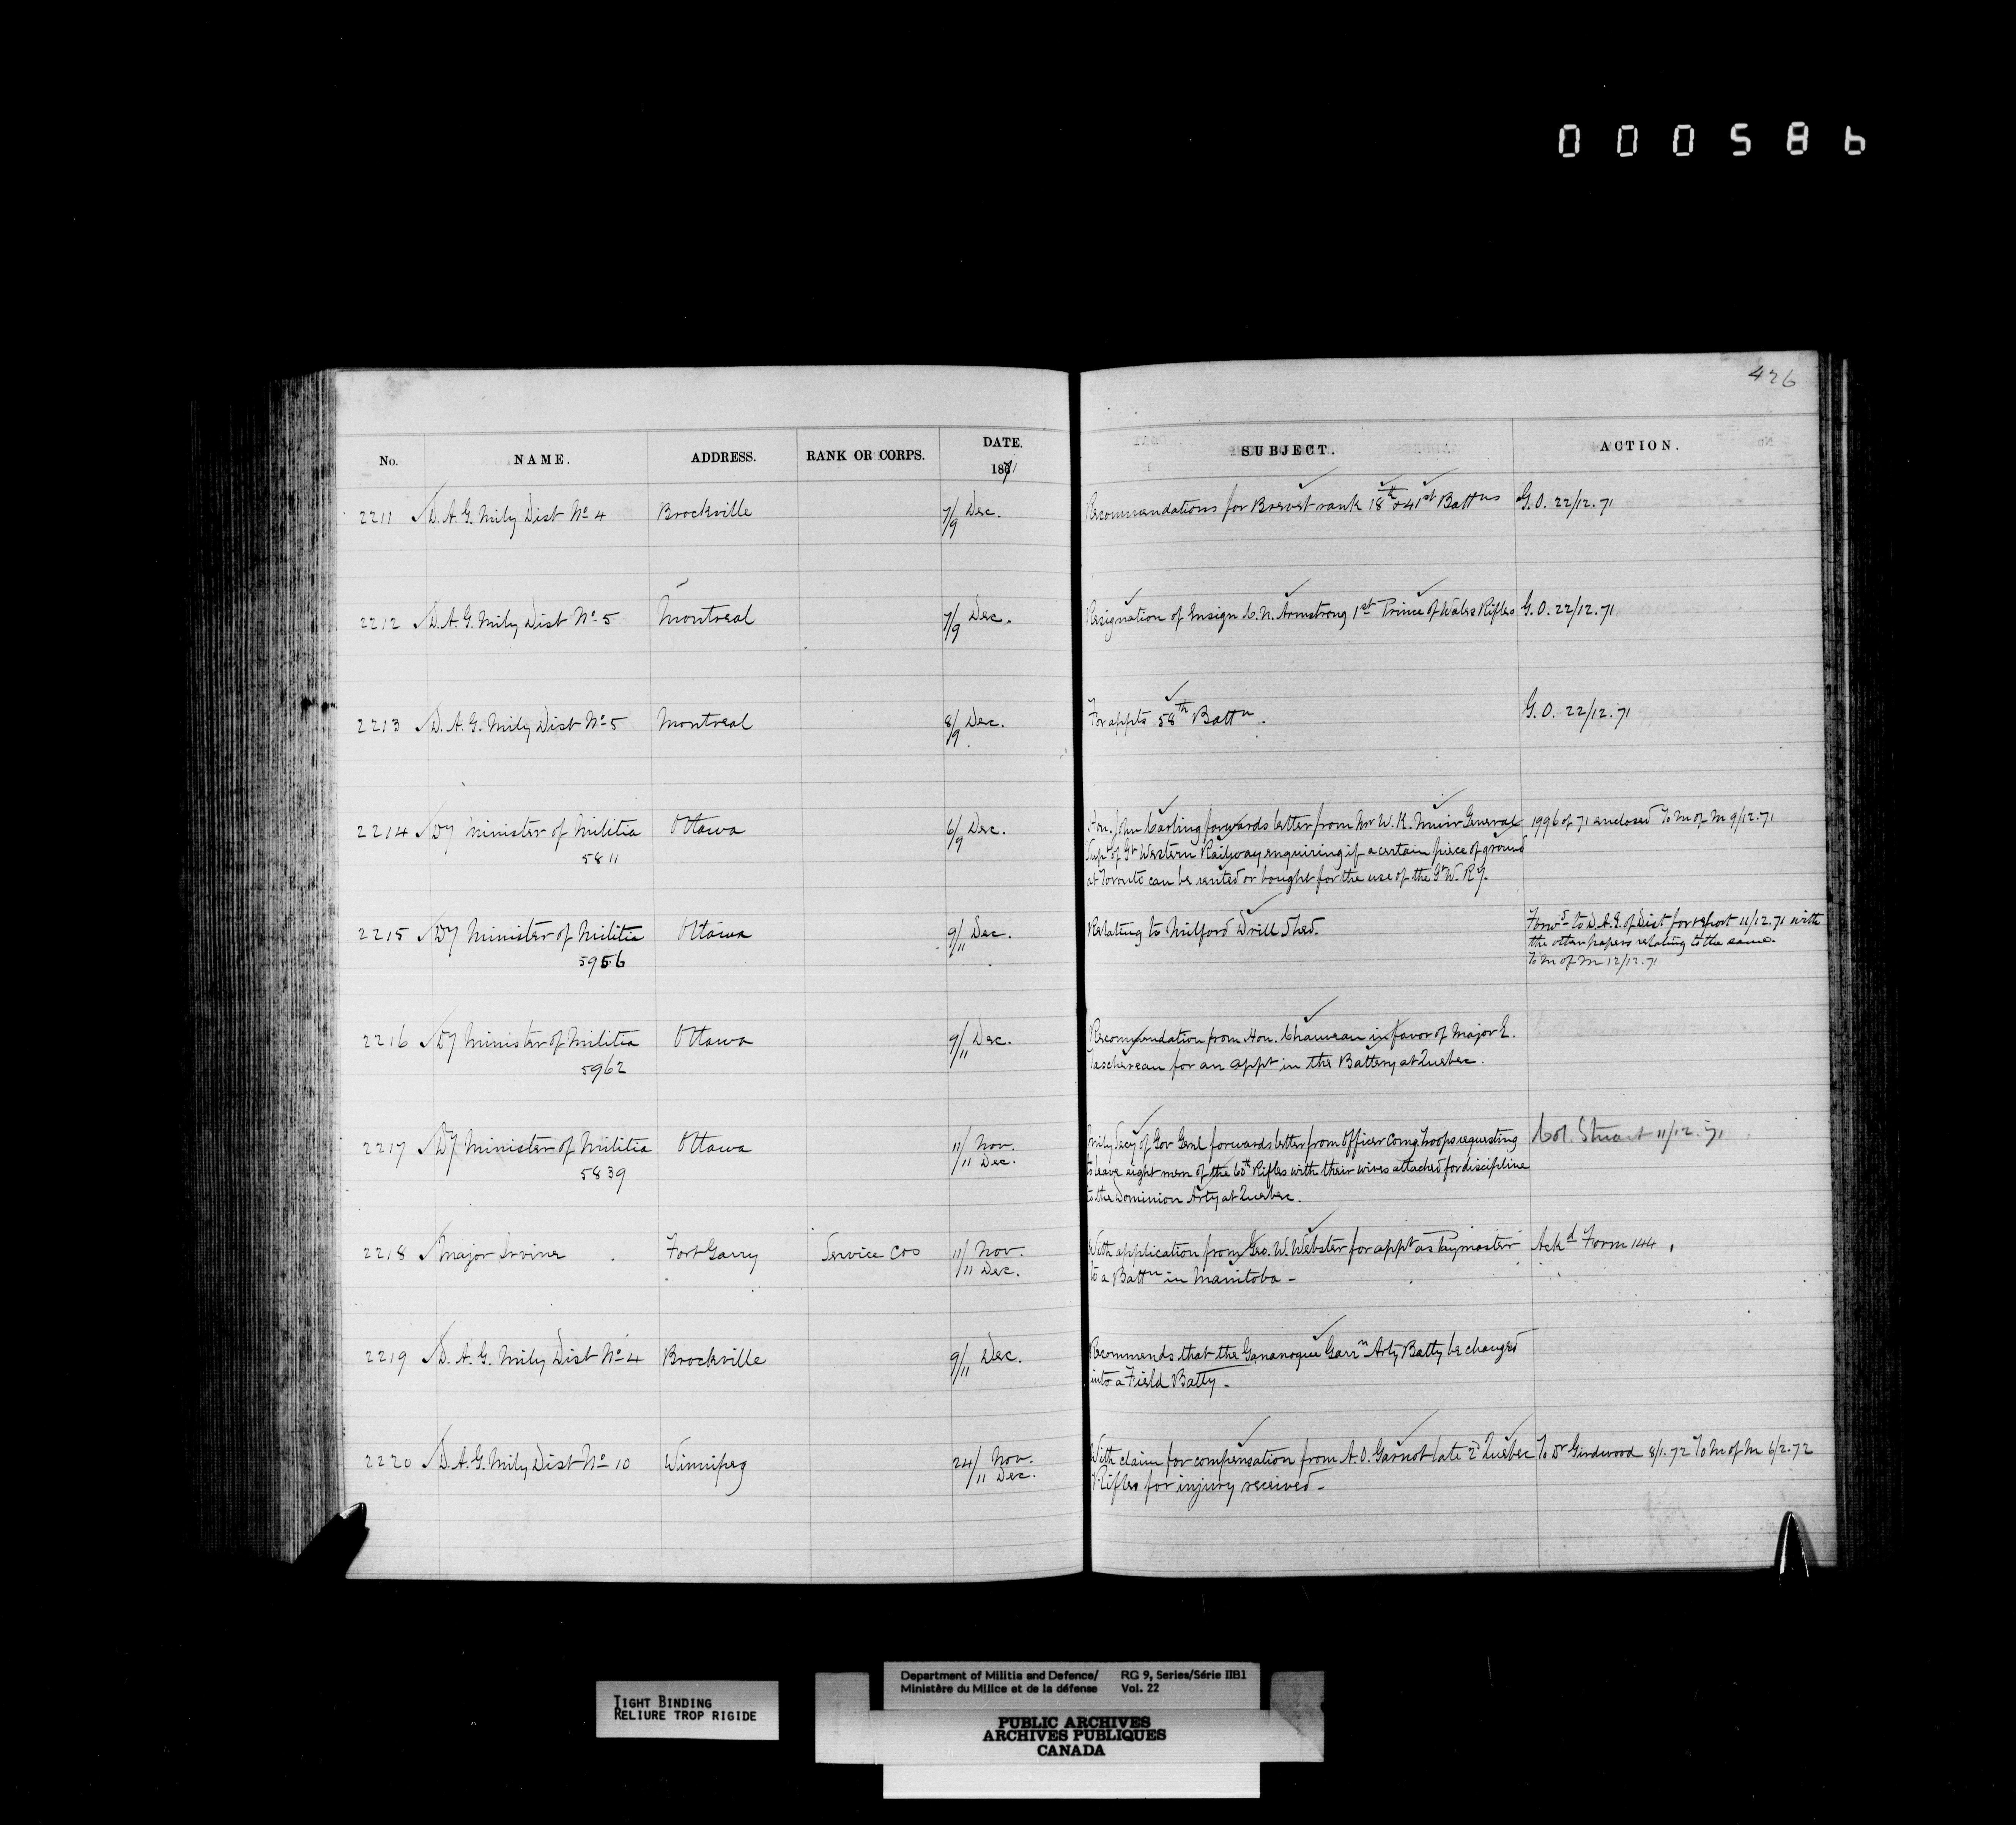 000586
426
No. NAME. ADDRESS. RANK OR CORPS. DATE. 1871 SUBJECT. ACTION.
2211 D. A. G. Mily Dist No 4 Brockville 7/9 Dec. Recommendations for Brevet rank 18th & 41st Battns G. O. 22/12.71
2212 D. A. G. Mily Dist No 5 Montreal 7/9 Dec. Resignation of Ensign C. N. Armstrong 1st Prince of Wales Rifles G. O. 22/12.71
2213 D. A. G. Mily Dist No 5 Montreal 8/9 Dec. For appts 58th Battn. G. O. 22/12.71
2214 Dy Minister of Militia Ottawa 6/9 Dec. Hon. John Carling forwards letter from Mr W. K. Muir General 1996 of 71 enclosed To M of M 9/12.71
5811 Supt of Gt Western Railway enquiring if a certain piece of ground
at Toronto can be rented or bought for the use of the Gt W. Ry.
2215 Dy Minister of Militia Ottawa 9/11 Dec. Relating to Milford Drill Shed. Forwd to D. A. G. of Dist for report 11/12.71 with
5956 the other papers relating to the same.
To M of M 12/12.71
2216 Dy Minister of Militia Ottawa 9/11 Dec. Recommendation from Hon. Chauveau in favor of Major E.
5962 Taschereau for an appt in the Battery at Quebec.
2217 Dy Minister of Militia Ottawa 11/11 Nov. Dec. Mily Secy of Gov Genl forwards letter from Officer Comg. troops requesting Col. Stuart 11/12.71
5839 to leave eight men of the 60th Rifles with their wives attached for discipline
to the Dominion Arty at Quebec.
2218 Major Irvine Fort Garry Service Cos 11/11 Nov. Dec. With application from Geo. W. Webster for appt as Paymaster Ackd Form 144
to a Battn in Manitoba -
2219 D. A. G. Mily Dist No 4 Brockville 9/11 Dec. Recommends that the Gananoque Garrn Arty Batty be changed
into a Field Batty -
2220 D. A. G. Mily Dist No 10 Winnipeg 24/11 Nov. Dec. With claim for compensation from A. O. Garnot late 2d Quebec To Dr Girdwood 8/1.72 To M of M 6/2.72
Rifles for injury received -
TIGHT BINDING
RELIURE TROP RIGIDE
Department of Militia and Defence/ RG 9, Series/Série IIB1
Ministère du Milice et de la défense Vol. 22
PUBLIC ARCHIVES
ARCHIVES PUBLIQUES
CANADA